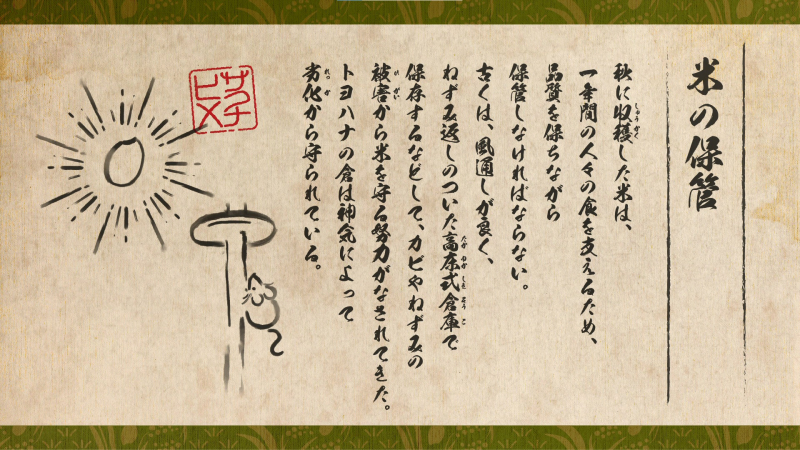 米の保管
秋に収穫した米は、
一年間の人々の食を支えるため、
品質を保ちながら
保管しなければならない。
古くは、風通しが良く、
ねずみ返しのついた高床式倉庫で
保存するなどして、カビやねずみの
被害から米を守る努力がなされてきた。
トヨハナの倉は神気によって
劣化から守られている。
サクナヒメ